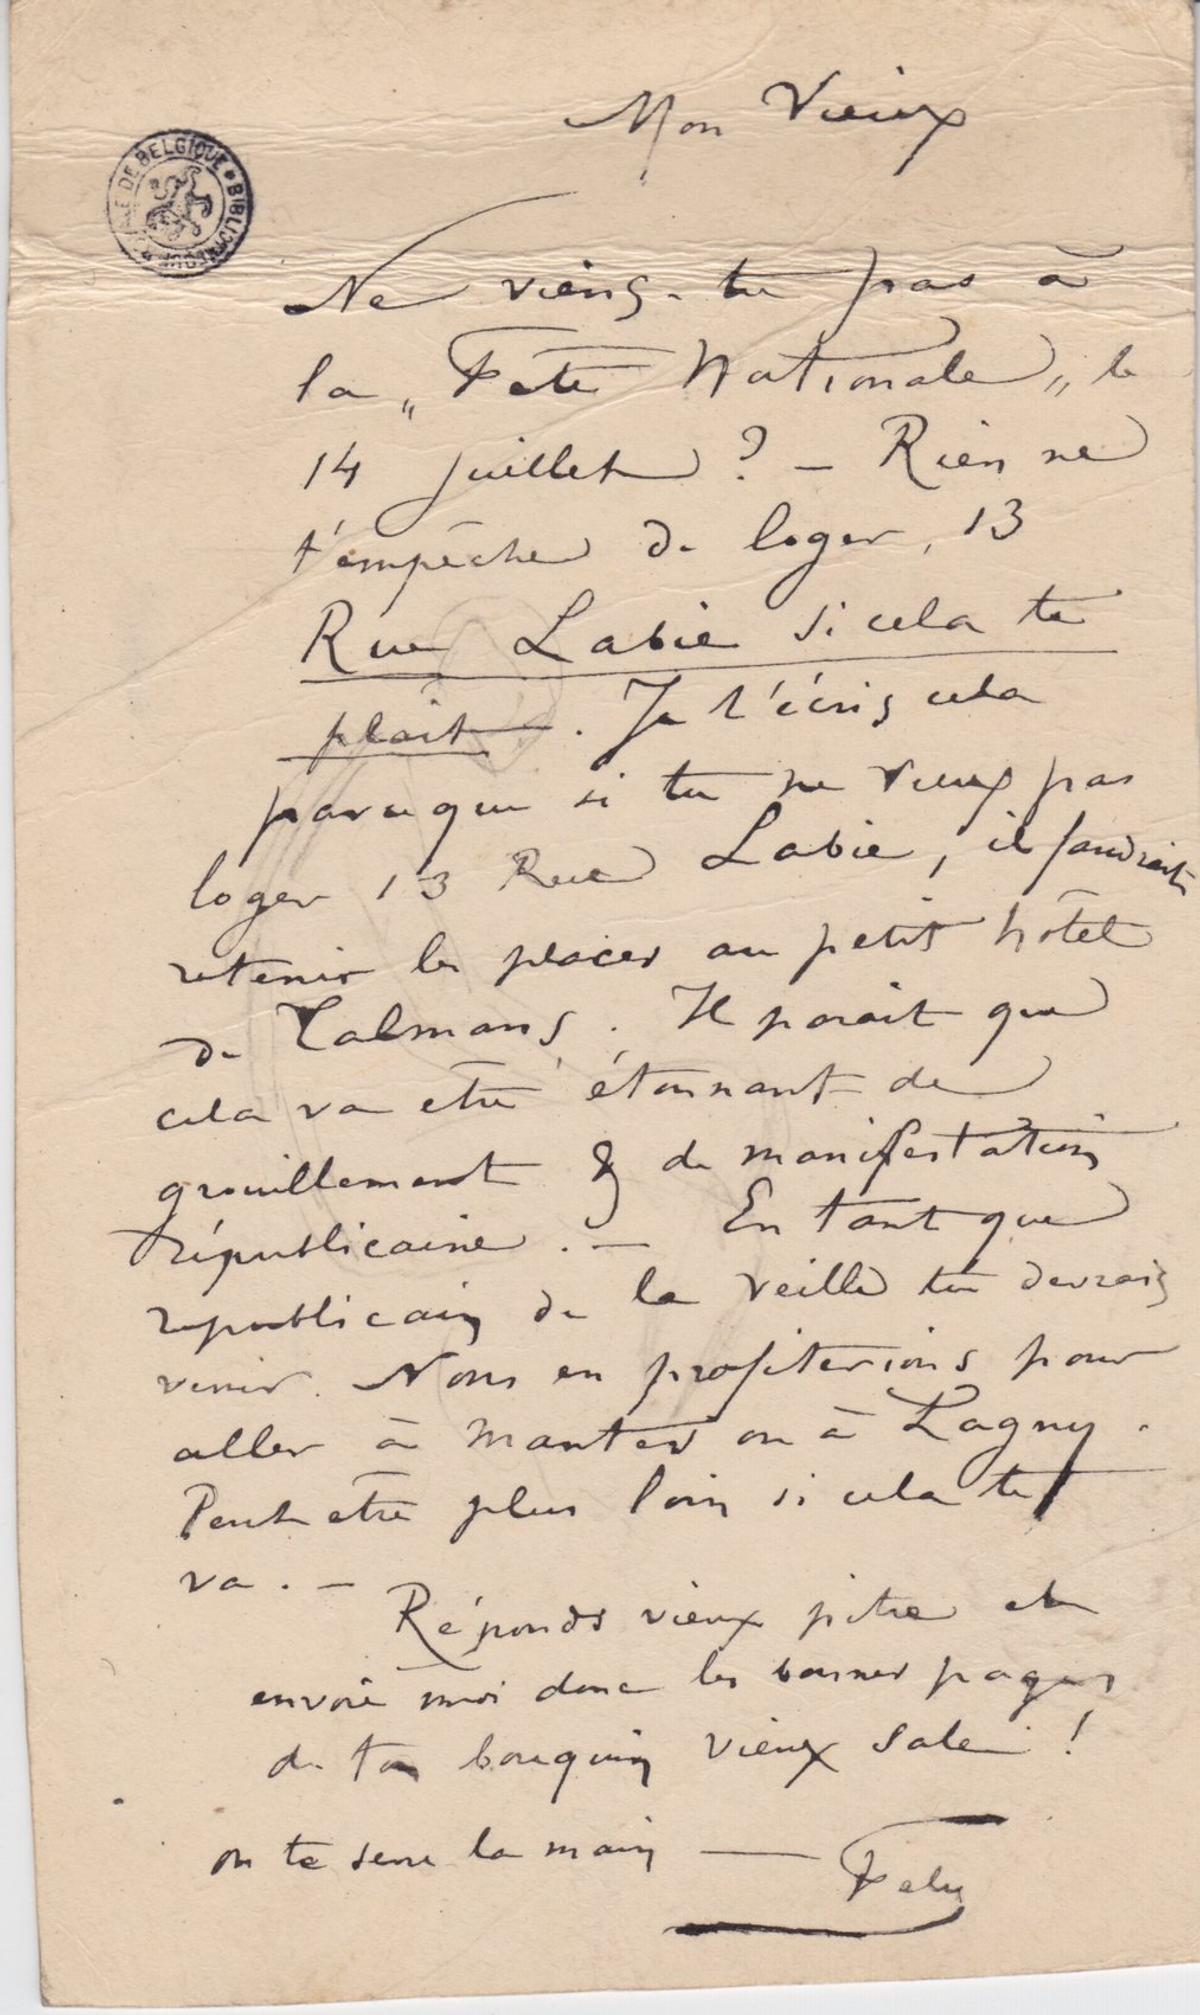 Mon Vieux
BIBLIOTHEQUE DE BELGIQUE
Ne viens-tu pas à
la „Fête Nationale„ le
14 juillet ? – Rien ne
t'empêche de loger, 13
Rue Labie si cela te
plait. Je t'écris cela
parceque si tu ne veux pas
loger 13 Rue Labie, il faudrait
retenir les places au petit hôtel
de Talmans. Il parait que
cela va être étonnant de
grouillement & de manifestations
républicaine. – En tant que
republicain de la veille tu devrais
venir. Nous en profiterions pour
aller à Mantes ou à Lagny.
Peut etre plus loin si cela te
va. –
Réponds vieux pitre et
envoie moi donc les bonnes pages
de ton bouquin vieux sale !
on te serre la main — Fely